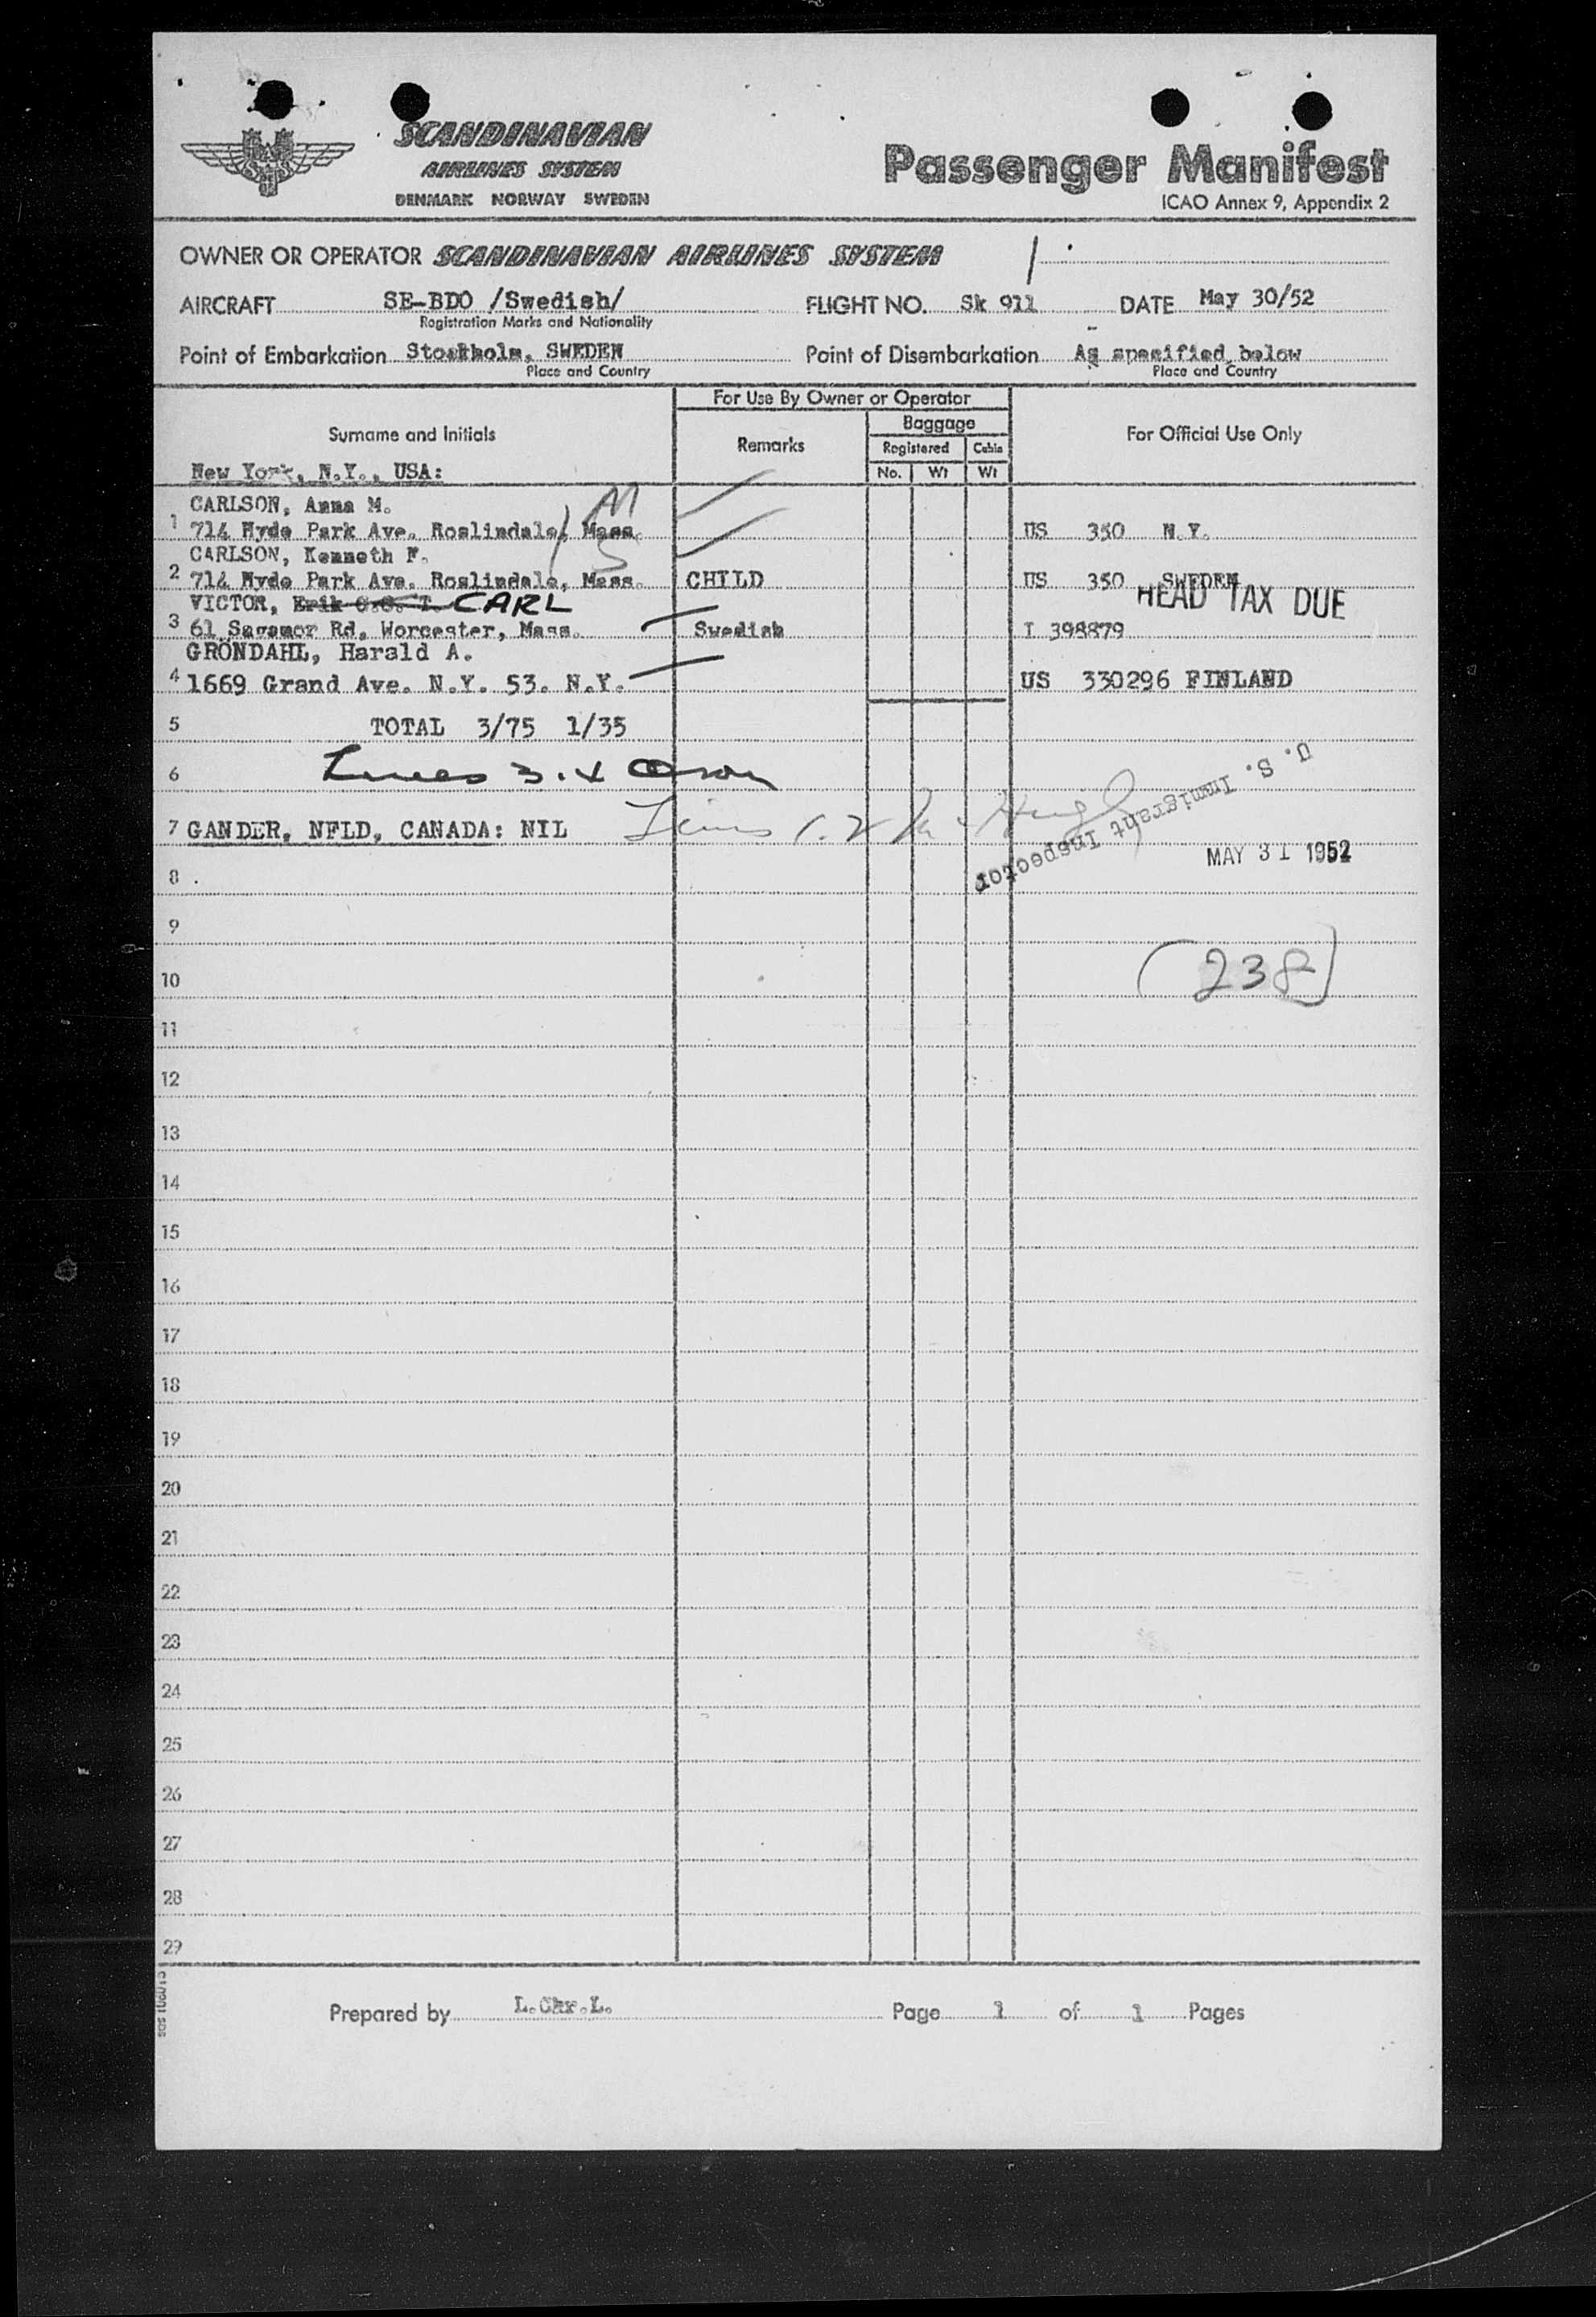 SCANDINAVIAN
AIRLINES SYSTEM
DENMARK NORWAY SWEDEN
Passenger Manifest
ICAO Annex 9, Appendix 2
OWNER OR OPERATOR SCANDINAVIAN AIRLINES SYSTEM
AIRCRAFT SE-BDO /Swedish/ FLIGHT NO. Sk 911 DATE May 30/52
Registration Marks and Nationality
Point of Embarkation Stockholm, SWEDEN Point of Disembarkation As specified below
Place and Country Place and Country
For Use By Owner or Operator
Surname and Initials Remarks Baggage For Official Use Only
Registered Cabin
No. Wt Wt
New York, N.Y., USA:
CARLSON, Anna M. M
1 714 Hyde Park Ave. Roslindale, Mass. US 350 N.Y.
CARLSON, Kenneth F. S
2 714 Hyde Park Ave. Roslindale, Mass. CHILD US 350 SWEDEN
HEAD TAX DUE
VICTOR, Erik CARL
3 61 Sagamor Rd, Worcester, Mass. Swedish I 398879
GRÖNDAHL, Harald A.
4 1669 Grand Ave. N.Y. 53. N.Y. US 330296 FINLAND
5 TOTAL 3/75 1/35
6 Lines 3.4 Olson
U. S. Immigrant Inspector
7 GANDER, NFLD, CANADA: NIL Lines 1.2
MAY 31 1952
8
9
(238)
10
11
12
13
14
15
16
17
18
19
20
21
22
23
24
25
26
27
28
29
Prepared by L.Chr.L. Page 1 of 1 Pages